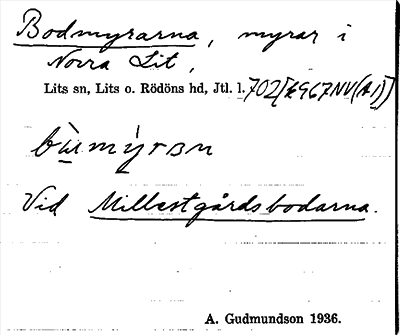 Bodmyrarna, myrar i
Norra Lit,
Lits sn, Lits o. Rödöns hd, Jtl. l. 702[£967NV(A1)]
Vid Millestgårdsbodarna.
A. Gudmundson 1936.